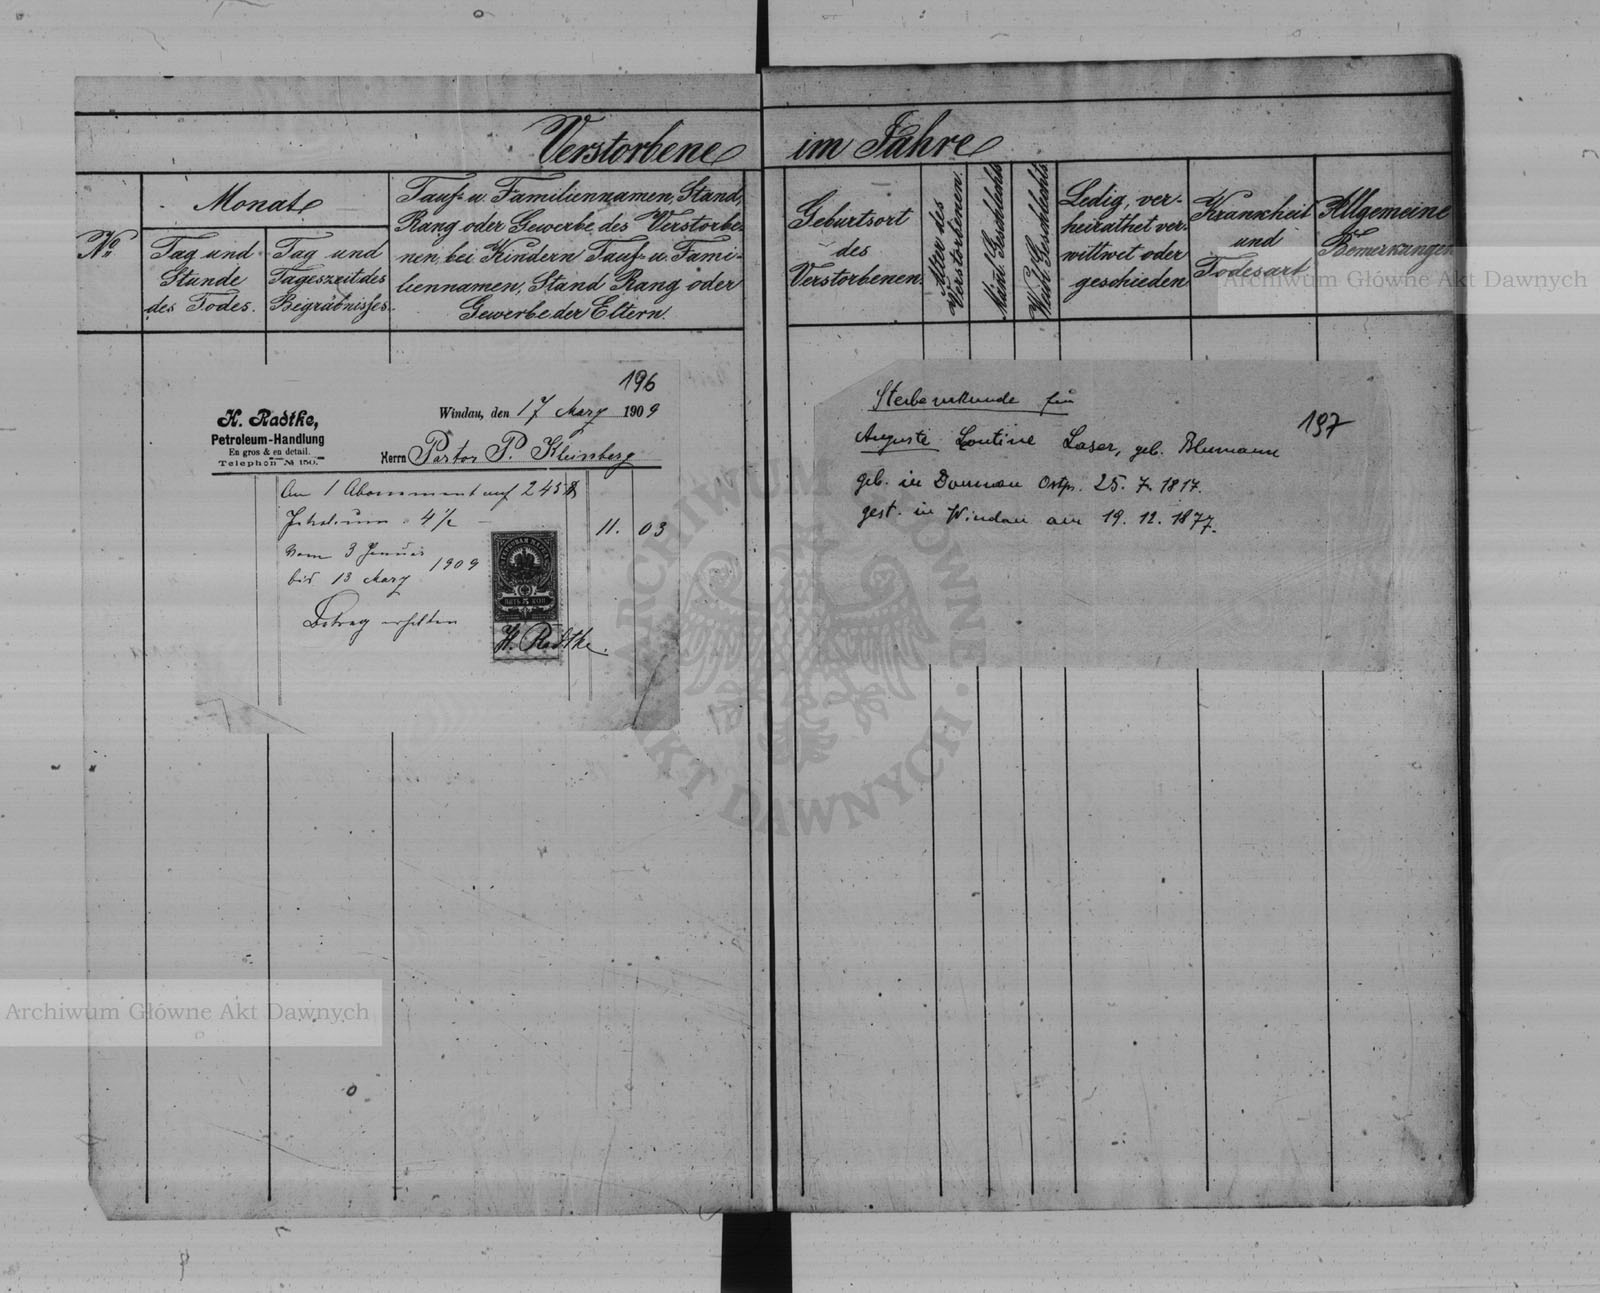 Verstorbene im Jahre
No
Monat
Tag und
Stunde
des Todes.
Tag und
Tageszeit des
Begräbnisses.
Tauf- u. Familiennamen, Stand,
Rang oder Gewerbe des Verstorbe-
nen, bei Kindern Tauf- u. Fami-
liennamen, Stand Rang oder
Gewerbe der Eltern.
Geburtsort
des
Verstorbenen.
Alter des
Verstorbenen.
Männl. Geschlechts
Weibl. Geschlechts
Ledig, ver-
heirathet ver-
wittwet oder
geschieden
Krankheit
und
Todesart
Allgemeine
Bemerkungen
196
H. Radtke,
Petroleum-Handlung
En gros & en detail.
Telephon № 150.
Windau, den 17 März 1909
Herrn Pastor P. Kleinberg
An 1 Abonnement auf 245
Petroleum 4½
11. 03
vom 3 Januar
bis 13 März 1909
Betrag erhalten
ПЯТЬ 5 КОП
H. Radtke.
197
Sterbeurkunde für
Auguste Laser, geb. Blumann
geb. in Domnau Ostpr. 25. 7. 1817.
gest. in Windau am 19. 12. 1877.
Archiwum Główne Akt Dawnych
Archiwum Główne Akt Dawnych
ARCHIWUM GŁÓWNE AKT DAWNYCH